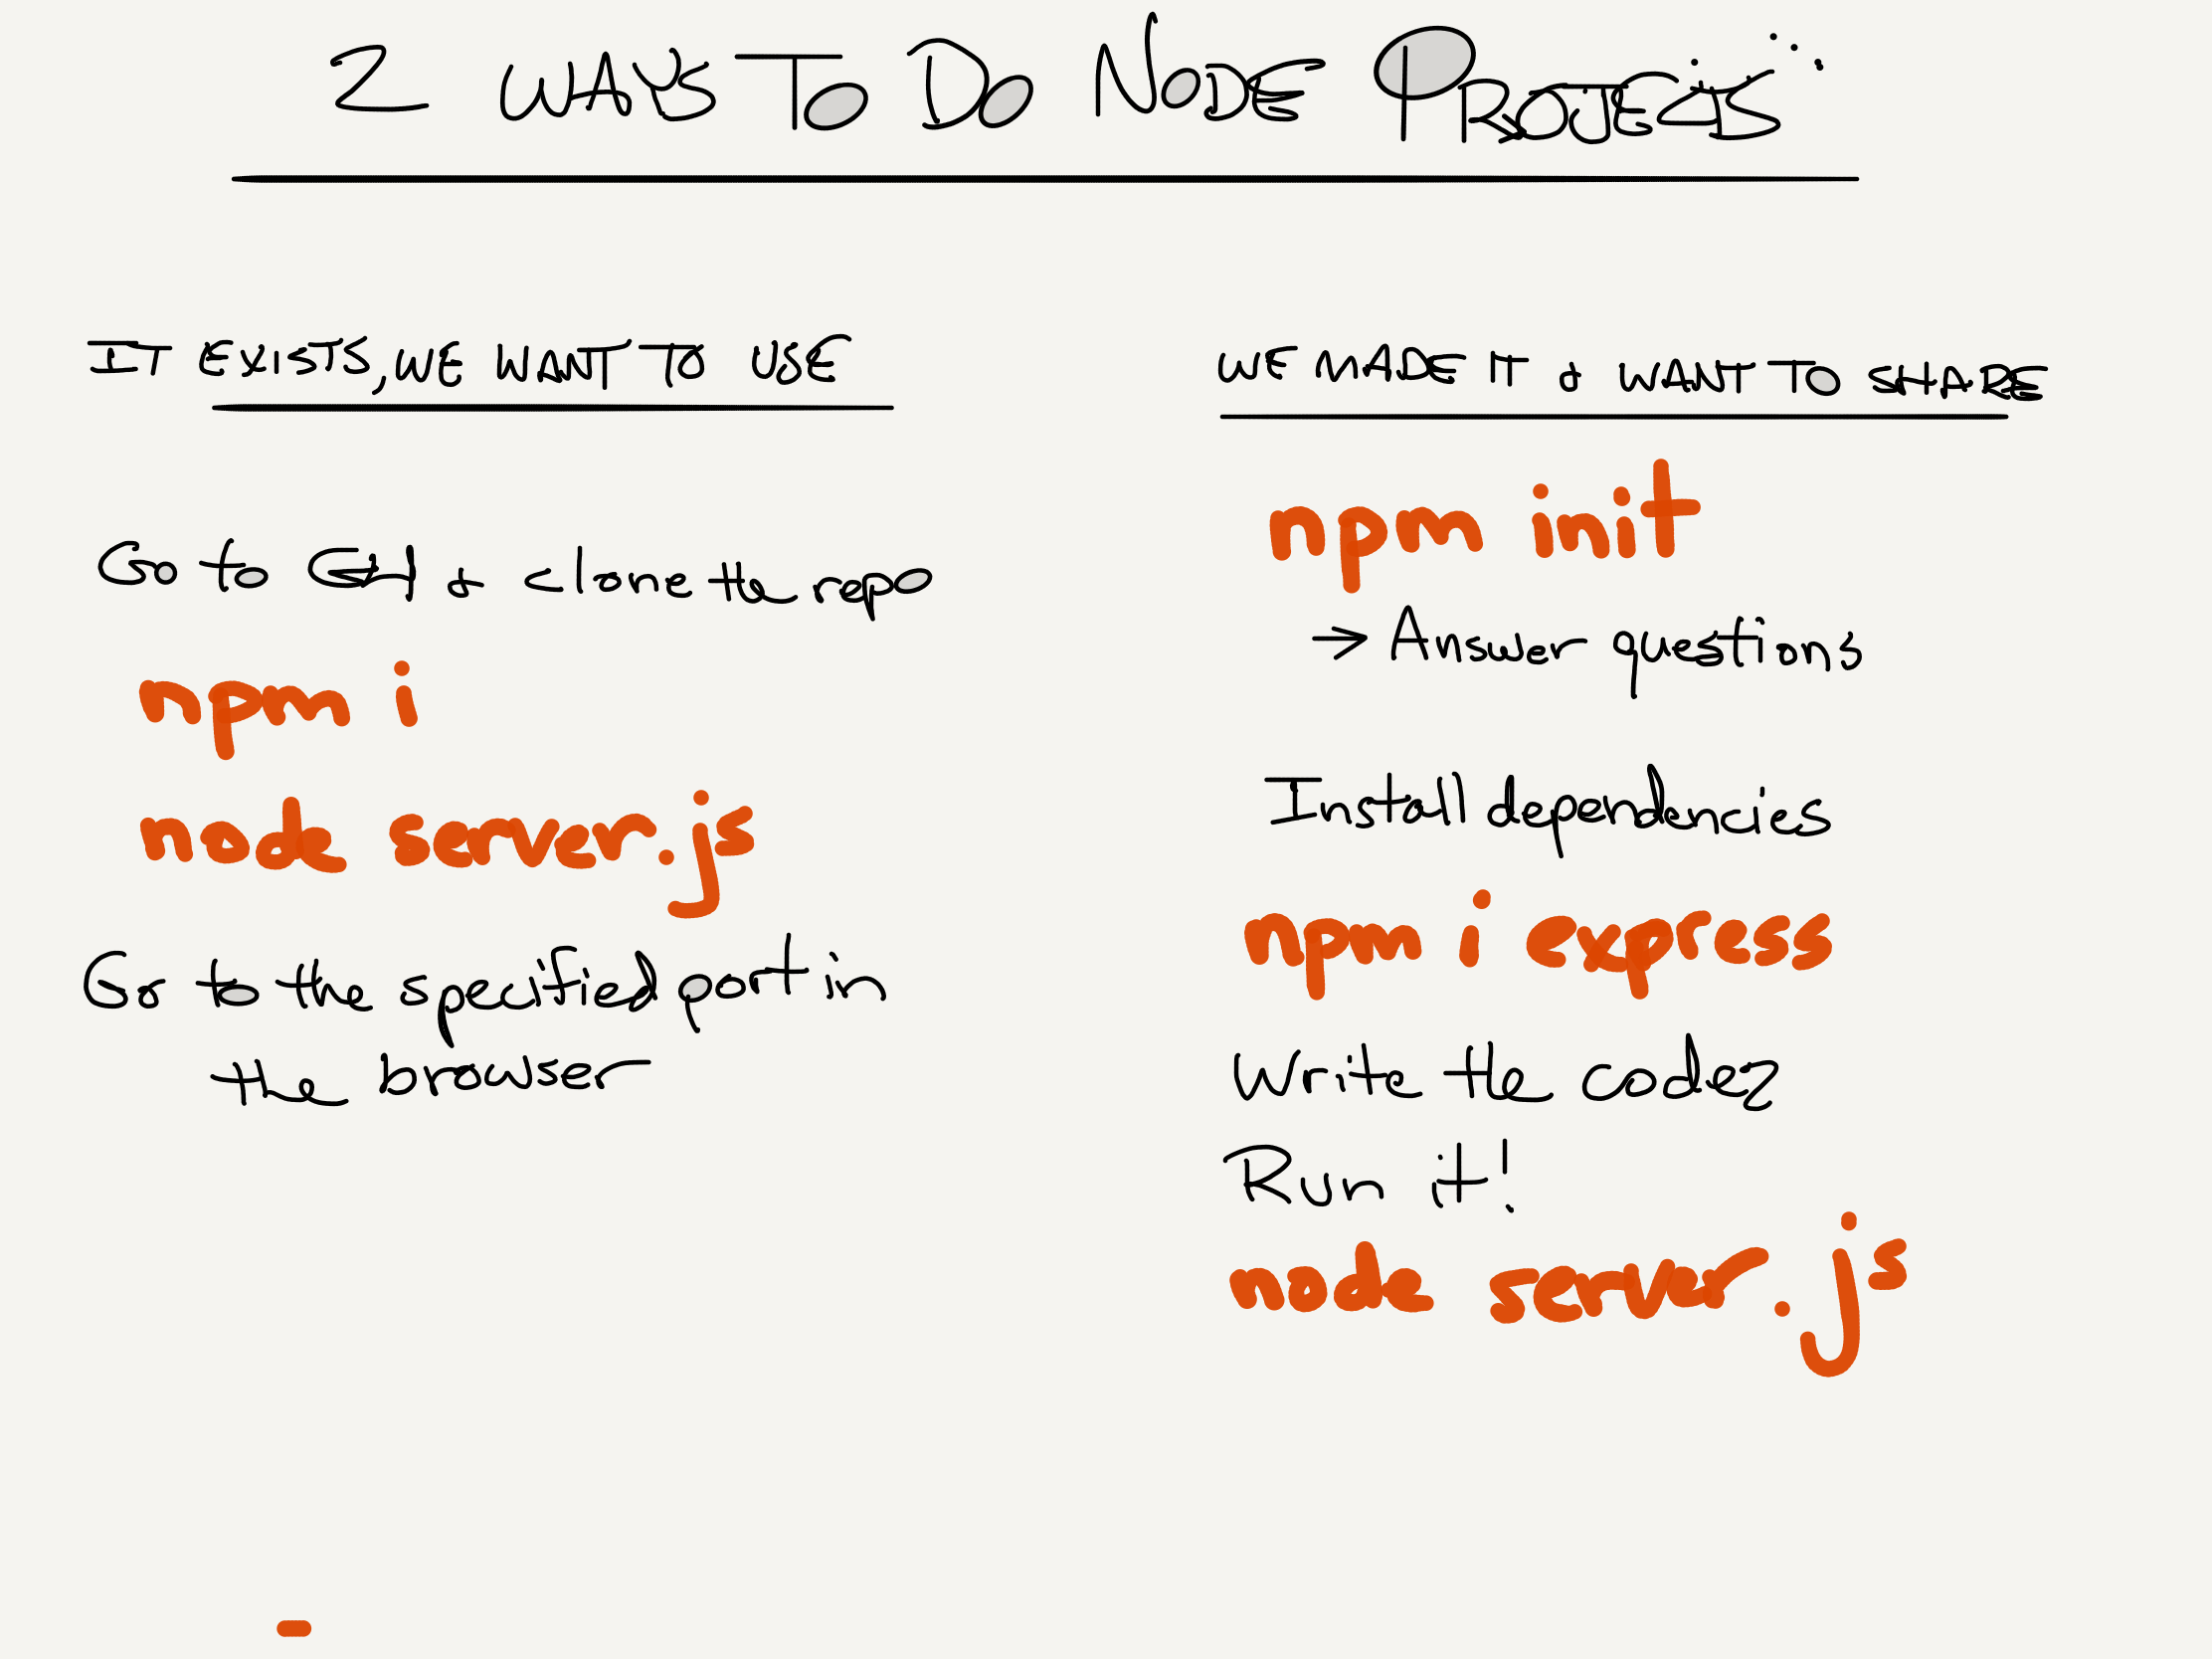 2 WAYS TO DO NODE PROJECTS
IT EXISTS, WE WANT TO USE
Go to GH & clone the repo
npm i
node server.js
Go to the specified port in
the browser
WE MADE IT & WANT TO SHARE
npm init
→ Answer questions
Install dependencies
npm i express
Write the codez
Run it!
node server.js